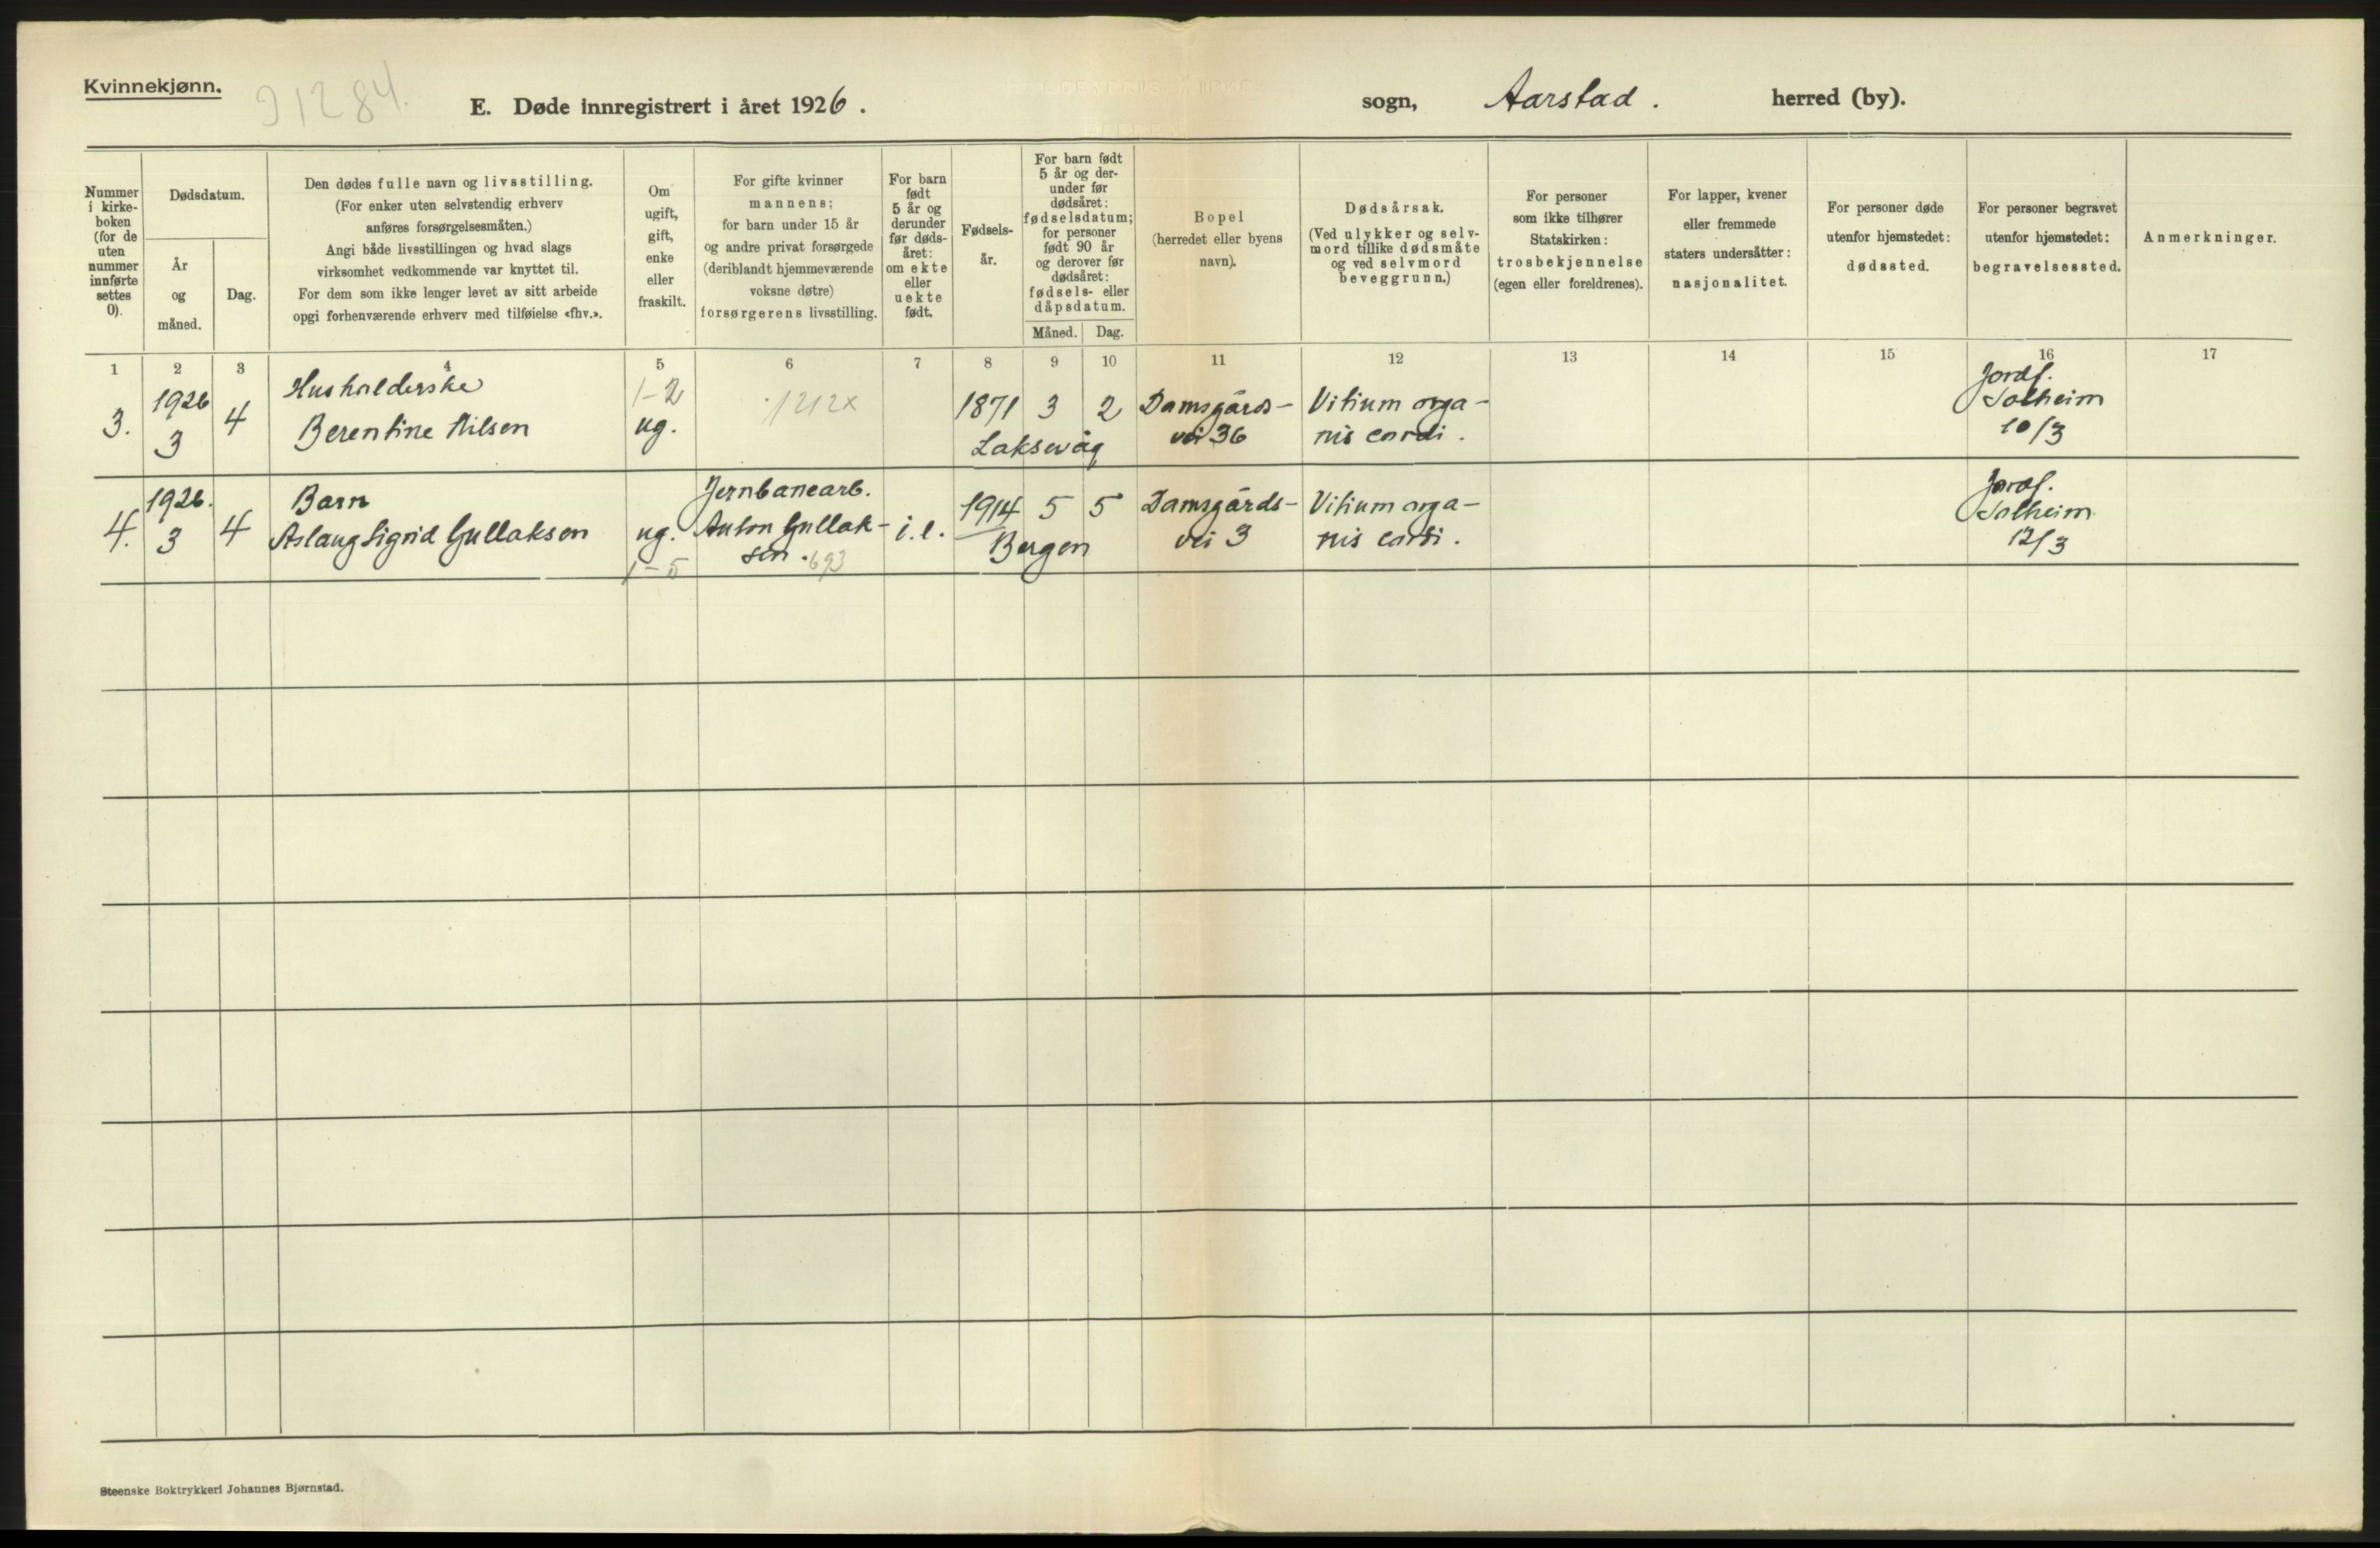 Kvinnekjønn.
91284.
E. Døde innregistrert i året 1926.
sogn, Aarstad. herred (by).
Nummer
i kirke-
boken
(for de
uten
nummer
innførte
settes
0).
Dødsdatum.
År
og
måned.
Dag.
Den dødes fulle navn og livsstilling.
(For enker uten selvstendig erhverv
anføres forsørgelsesmåten.)
Angi både livsstillingen og hvad slags
virksomhet vedkommende var knyttet til.
For dem som ikke lenger levet av sitt arbeide
opgi forhenværende erhverv med tilføielse «fhv.».
Om
ugift,
gift,
enke
eller
fraskilt.
For gifte kvinner
mannens;
for barn under 15 år
og andre privat forsørgede
(deriblandt hjemmeværende
voksne døtre)
forsørgerens livsstilling.
For barn
født
5 år og
derunder
før døds-
året:
om ekte
eller
uekte
født.
Fødsels-
år.
For barn født
5 år og der-
under før
dødsåret:
fødselsdatum;
for personer
født 90 år
og derover før
dødsåret:
fødsels- eller
dåpsdatum.
Måned. Dag.
Bopel
(herredet eller byens
navn).
Dødsårsak.
(Ved ulykker og selv-
mord tillike dødsmåte
og ved selvmord
beveggrunn.)
For personer
som ikke tilhører
Statskirken:
trosbekjennelse
(egen eller foreldrenes).
For lapper, kvener
eller fremmede
staters undersåtter:
nasjonalitet.
For personer døde
utenfor hjemstedet:
dødssted.
For personer begravet
utenfor hjemstedet:
begravelsessted.
Anmerkninger.
1 2 3 4 5 6 7 8 9 10 11 12 13 14 15 16 17
3.
1926
3
4
Husholderske
Berentine Nilsen
1-2
ug.
1212x
1871 3 2
Laksevåg
Damsgårds-
vei 36
Vitium orga-
nis cordi.
Jordf.
Solheim
10/3
4.
1926.
3
4
Barn
Aslaug Sigrid Gullaksen
ug.
1-5
Jernbanearb.
Anton Gullak-
sen. 693
i.e.
1914 5 5
Bergen
Damsgårds-
vei 3
Vitium orga-
nis cordi.
Jordf.
Solheim
12/3
Steenske Boktrykkeri Johannes Bjørnstad.